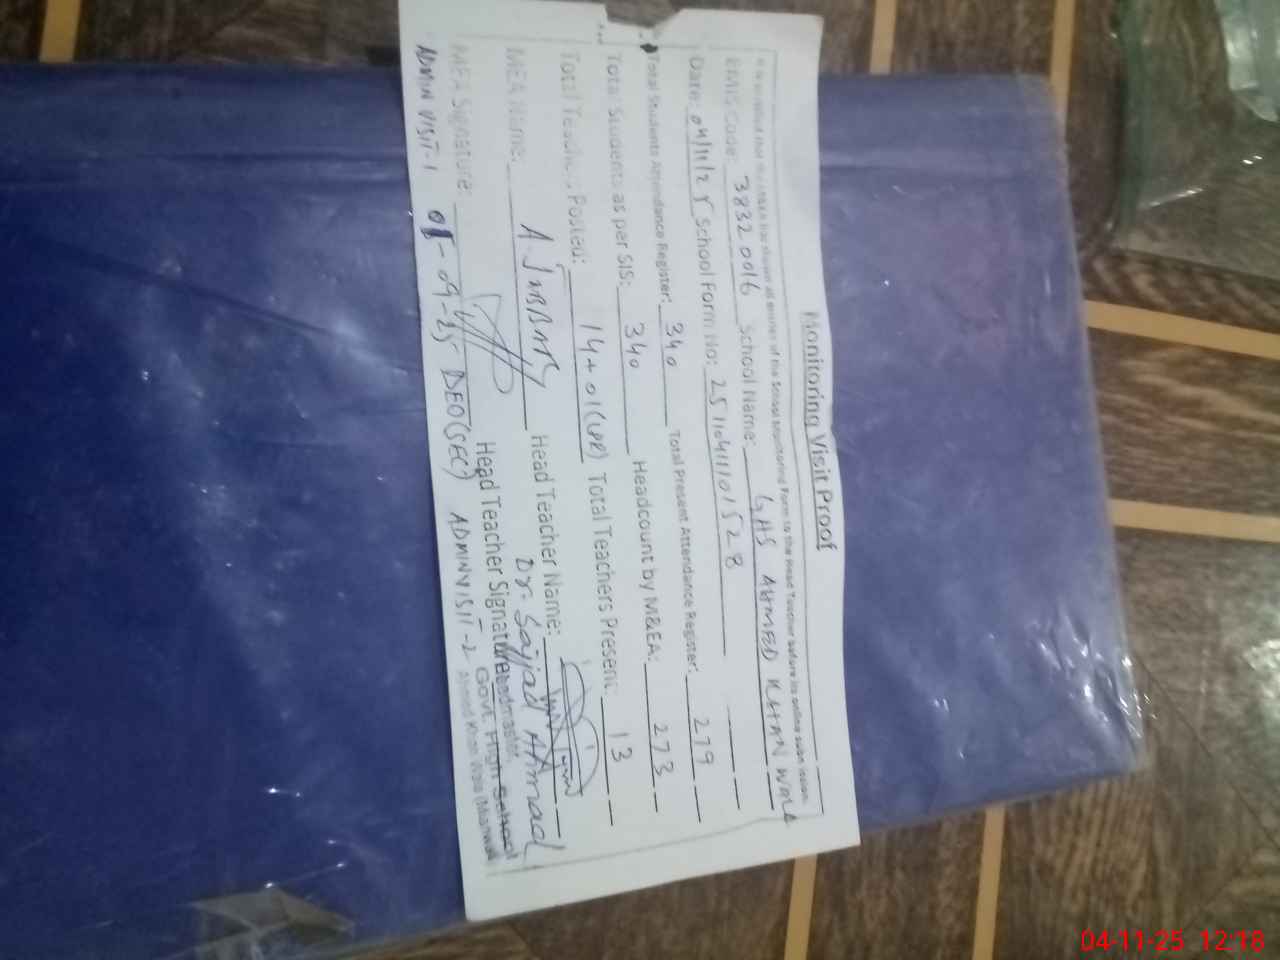 Monitoring Visit Proof
It is certified that the M&EA has shown all entries of the School Monitoring Form to the Head Teacher before its online submission.
EMIS Code: 38320016 School Name: GHS AHMED KHAN WALA
Date: 04/11/25 School Form No: 25110411101528
Total Students Attendance Register: 340 Total Present Attendance Register: 279
Total Students as per SIS: 340 Headcount by M&EA: 273
Total Teachers Posted: 14+01(LPR) Total Teachers Present: 13
MEA Name: A. JABBAR Head Teacher Name:
Dr. Sajjad Ahmad
MEA Signature: Head Teacher Signature
Headmaster
Govt. High School
Ahmed Khan Wala
ADMIN VISIT-1 08-09-25 DEO(SEC) ADMIN VISIT-2
04-11-25 12:18